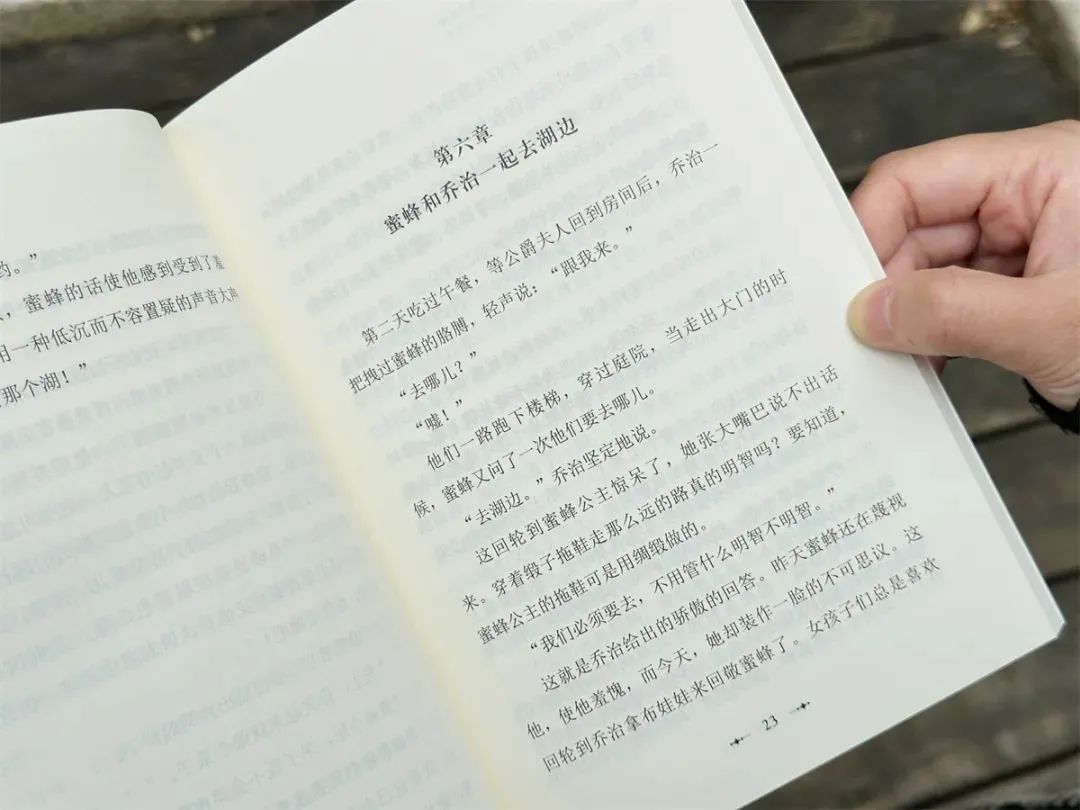 的。”
，蜜蜂的话使他感到受到了羞
用一种低沉而不容置疑的声音大声
那个湖！”
第六章
蜜蜂和乔治一起去湖边
第二天吃过午餐，等公爵夫人回到房间后，乔治一
把拽过蜜蜂的胳膊，轻声说：“跟我来。”
“去哪儿？”
“嘘！”
他们一路跑下楼梯，穿过庭院，当走出大门的时
候，蜜蜂又问了一次他们要去哪儿。
“去湖边。”乔治坚定地说。
这回轮到蜜蜂公主惊呆了，她张大嘴巴说不出话
来。穿着缎子拖鞋走那么远的路真的明智吗？要知道，
蜜蜂公主的拖鞋可是用绸缎做的。
“我们必须要去，不用管什么明智不明智。”
这就是乔治给出的骄傲的回答。昨天蜜蜂还在蔑视
他，使他羞愧，而今天，她却装作一脸的不可思议。这
回轮到乔治拿布娃娃来回敬蜜蜂了。女孩子们总是喜欢
23